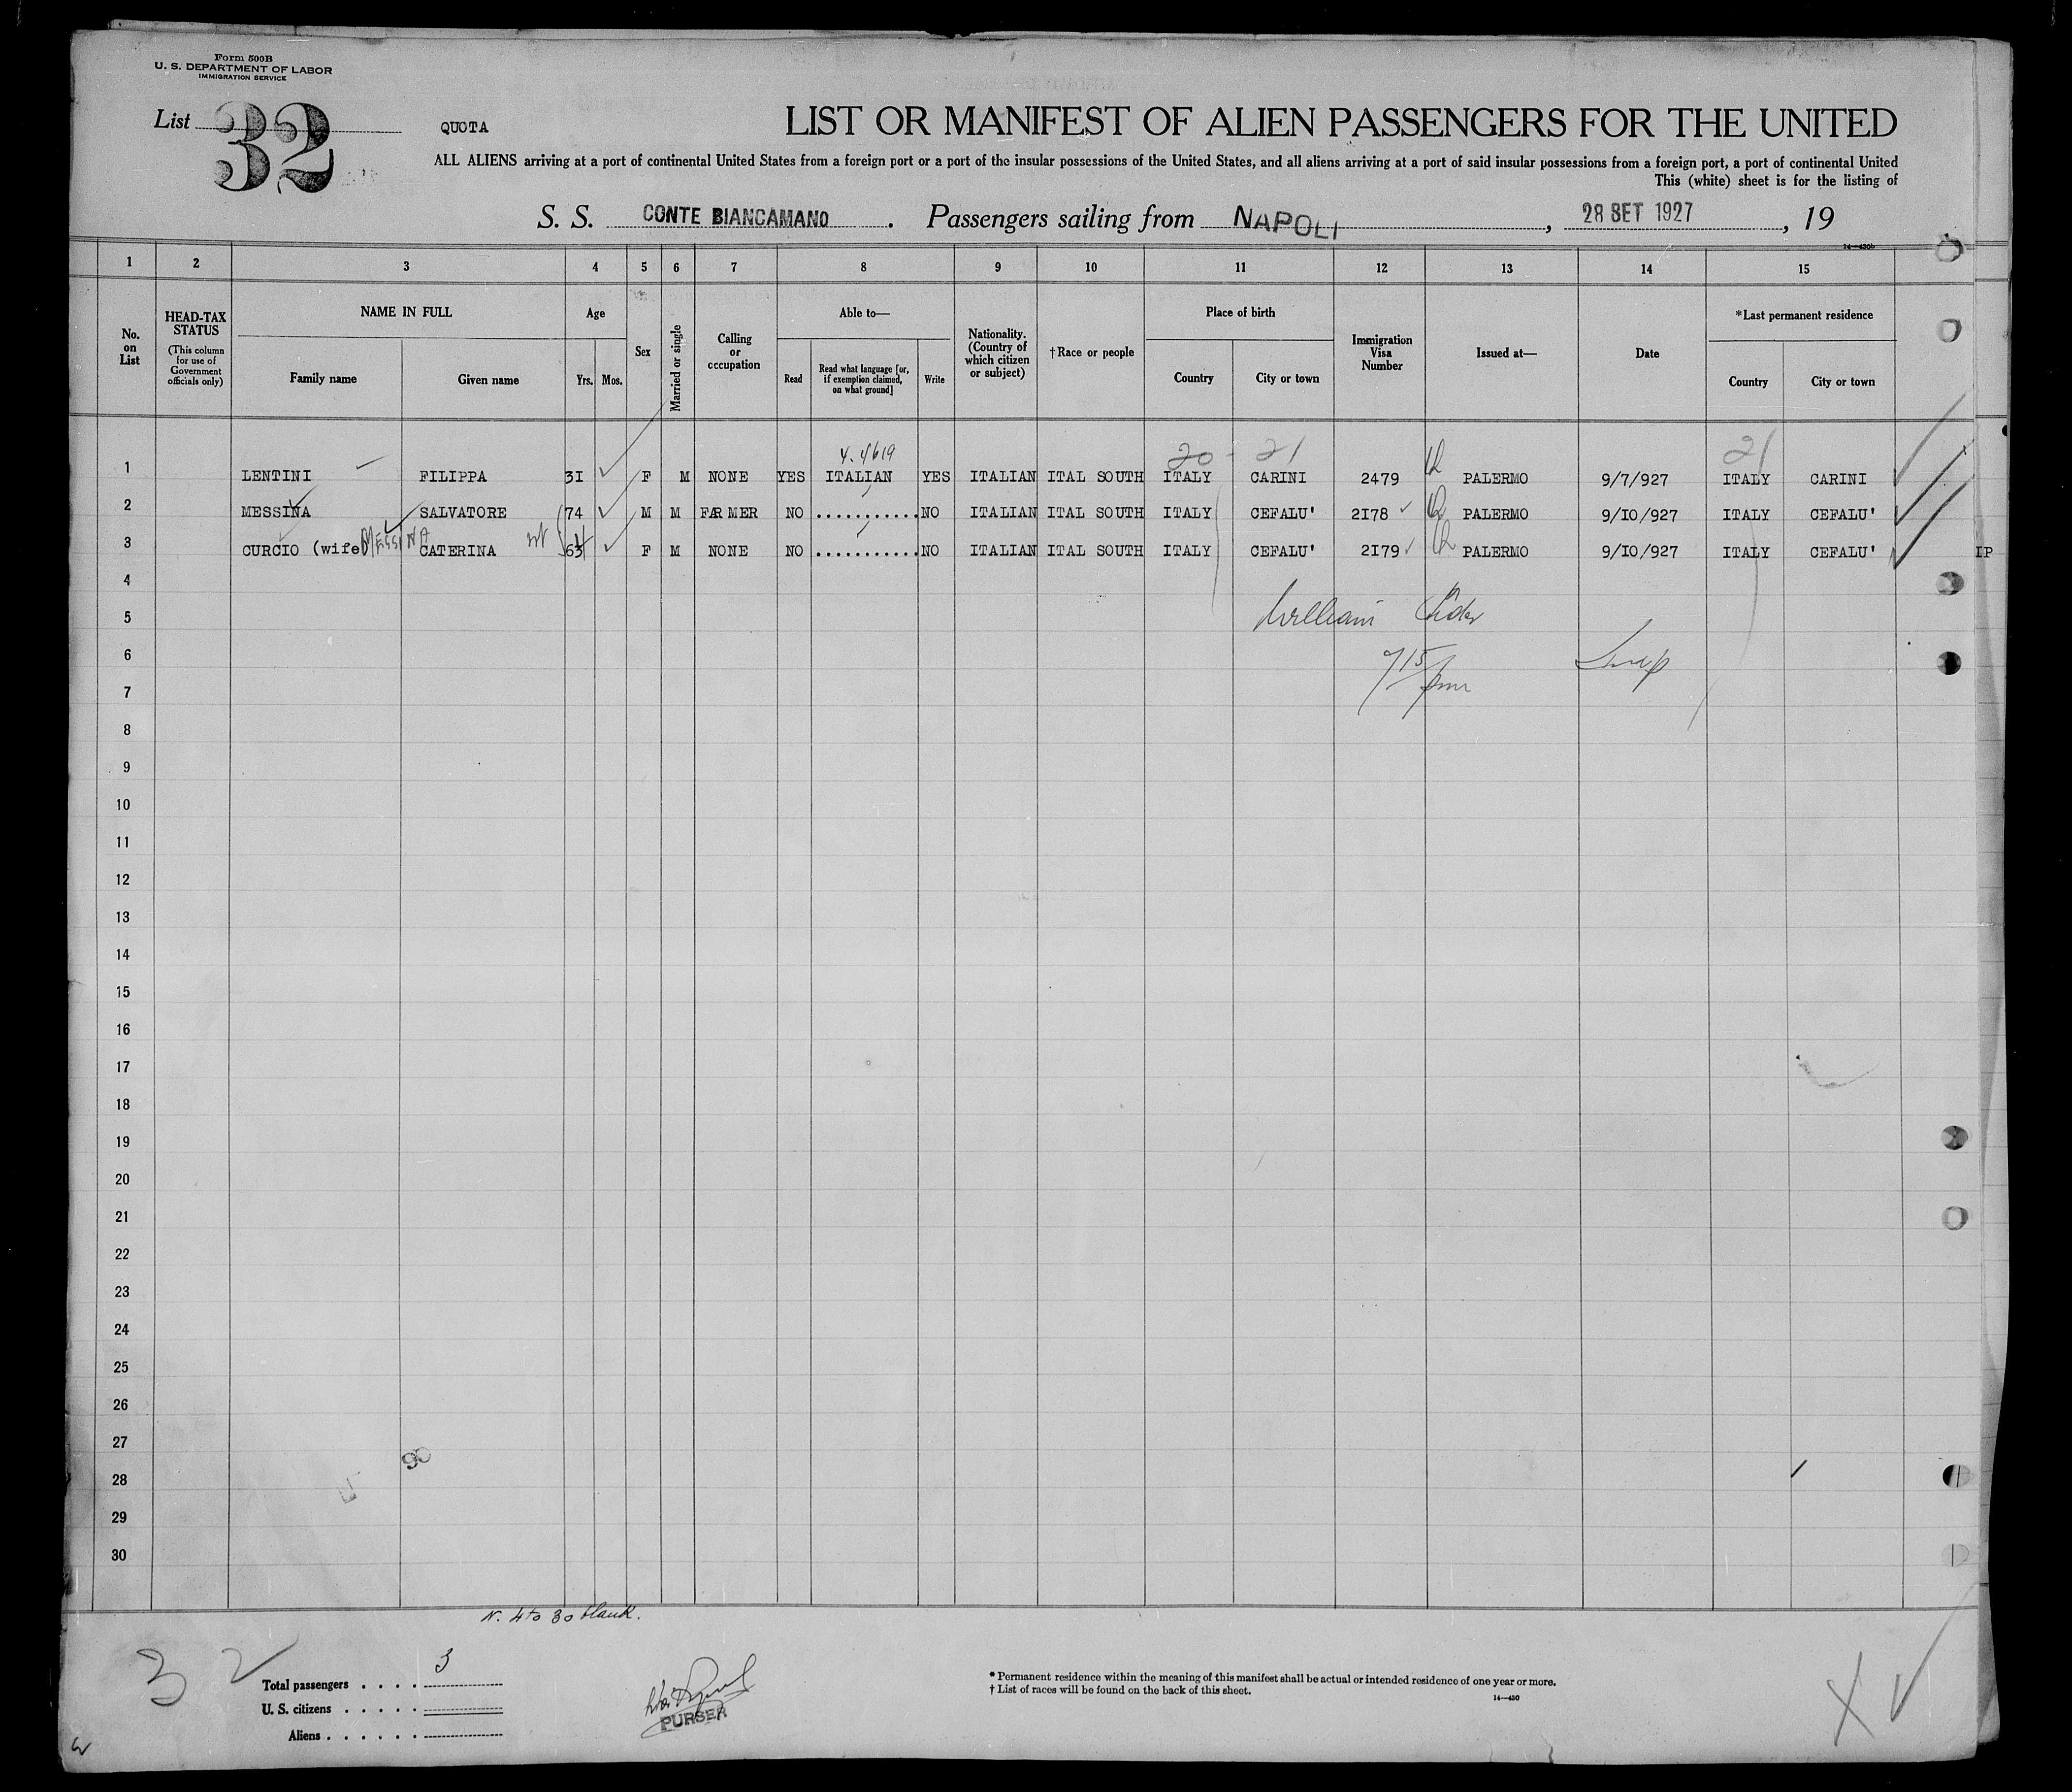 Form 500B
U. S. DEPARTMENT OF LABOR
IMMIGRATION SERVICE
List 32
QUOTA
LIST OR MANIFEST OF ALIEN PASSENGERS FOR THE UNITED
ALL ALIENS arriving at a port of continental United States from a foreign port or a port of the insular possessions of the United States, and all aliens arriving at a port of said insular possessions from a foreign port, a port of continental United
This (white) sheet is for the listing of
S. S. CONTE BIANCAMANO. Passengers sailing from NAPOLI, 28 SET 1927, 19
14—430b
1 2 3 4 5 6 7 8 9 10 11 12 13 14 15
No. on List
HEAD-TAX STATUS
(This column for use of Government officials only)
NAME IN FULL
Family name Given name
Age
Yrs. Mos.
Sex
Married or single
Calling or occupation
Able to—
Read
Read what language [or, if exemption claimed, on what ground]
Write
Nationality. (Country of which citizen or subject)
†Race or people
Place of birth
Country City or town
Immigration Visa Number
Issued at—
Date
*Last permanent residence
Country City or town
20 - 21 21
1 LENTINI FILIPPA 3I F M NONE YES ITALIAN YES ITALIAN ITAL SOUTH ITALY CARINI 2479 PALERMO 9/7/927 ITALY CARINI
2 MESSINA SALVATORE 74 M M FARMER NO ........... NO ITALIAN ITAL SOUTH ITALY CEFALU' 2I78 PALERMO 9/IO/927 ITALY CEFALU'
3 CURCIO (wife) MESSINA CATERINA 63 F M NONE NO ........... NO ITALIAN ITAL SOUTH ITALY CEFALU' 2I79 PALERMO 9/IO/927 ITALY CEFALU' IP
4
5 William
6 Insp
7
8
9
10
11
12
13
14
15
16
17
18
19
20
21
22
23
24
25
26
27
90
28
29
30
N. 4 to 30 blank.
32
Total passengers . . . . 3
U. S. citizens . . . . .
Aliens . . . . . .
PURSER
* Permanent residence within the meaning of this manifest shall be actual or intended residence of one year or more.
† List of races will be found on the back of this sheet.
14—430